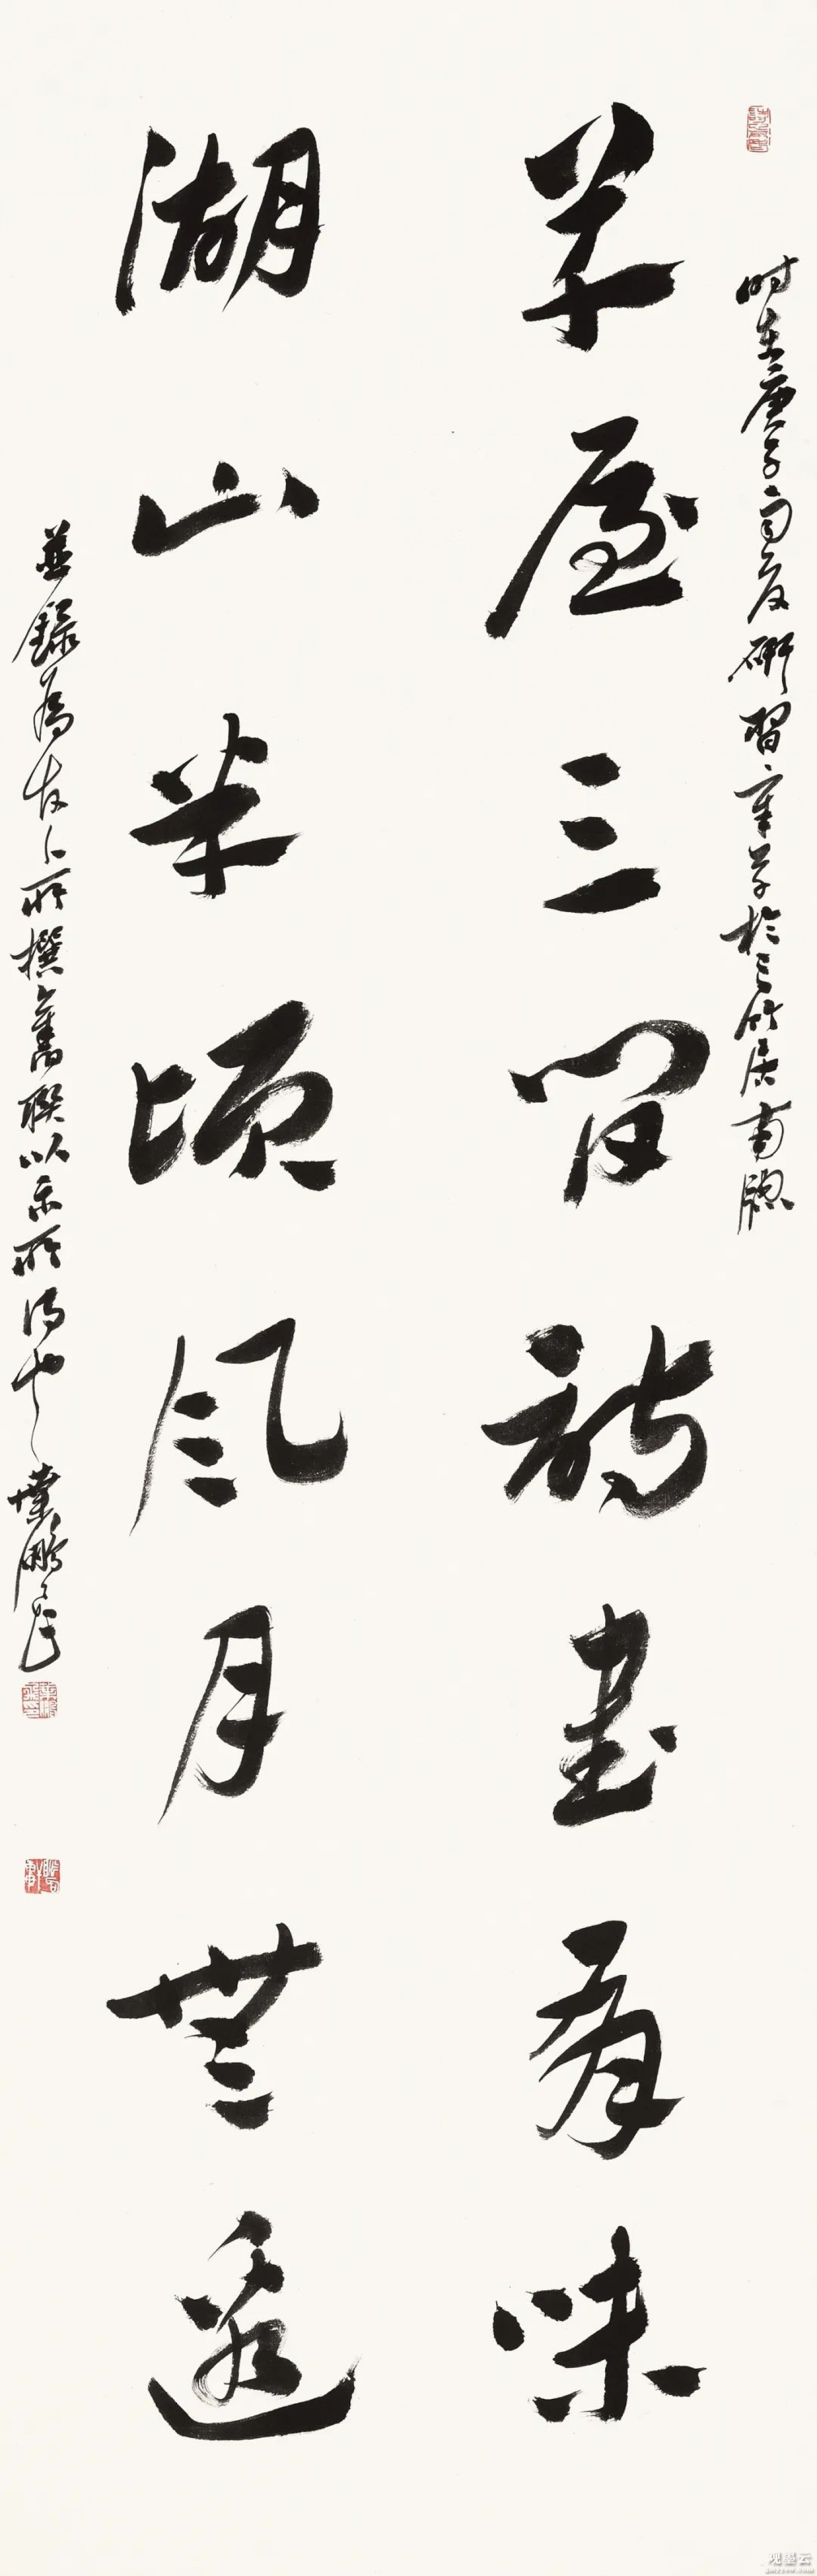 時在庚子雨夜研習章草於三竹居南牕
草屋三間詩書有味
湖山半頃風月無邊
並錄爲友人所撰舊聯以示所得也葉鵬飛